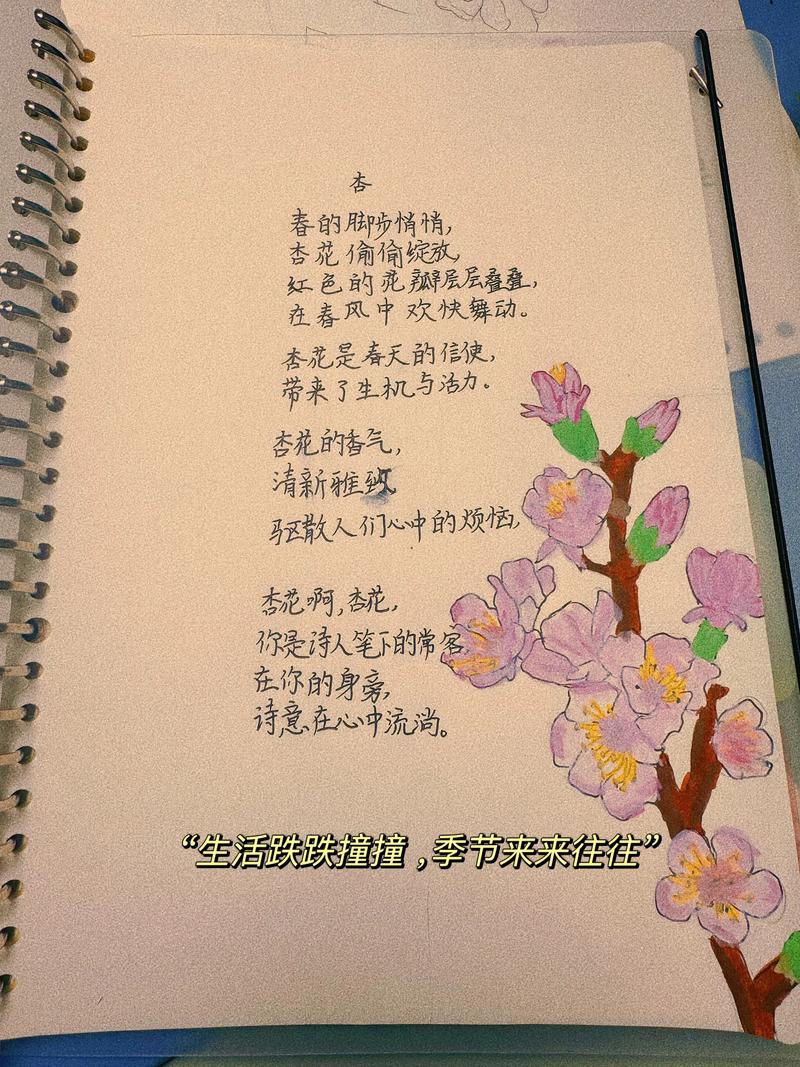 杏
春的脚步悄悄,
杏花偷偷绽放,
红色的花瓣层层叠叠,
在春风中欢快舞动。
杏花是春天的信使,
带来了生机与活力。
杏花的香气,
清新雅致
驱散人们心中的烦恼,
杏花啊,杏花,
你是诗人笔下的常客
在你的身旁,
诗意在心中流淌。
“生活跌跌撞撞,季节来来往往”